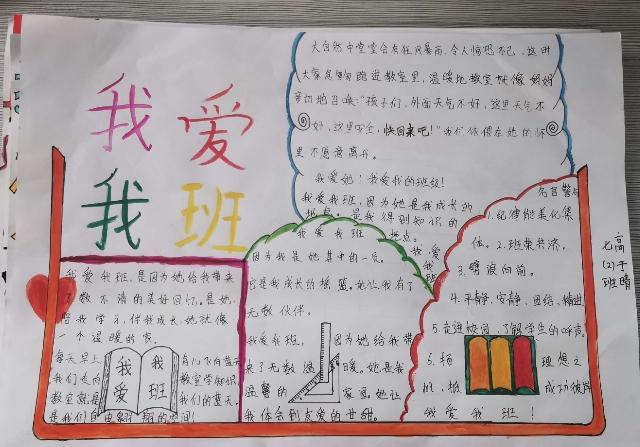 我爱
我班
大自然中常常会有狂风暴雨,令人惊恐不已,这时
大家急匆匆跑进教室里,温暖地教室就像妈妈
亲切地召唤:“孩子们,外面天气不好,这里天气不
好,这里安全,快回来吧!”我们依偎在她的怀
里不愿意离开。
我爱她!我爱我的班级!
我爱我班,因为她是我成长的
摇是我得到知识的
我爱我班 地点。
因为我是她其中的一员。
它是我成长的摇篮。她让我有了
无数伙伴。
我爱我班, 因为她给我带
来了无数温 暖。她是我
温馨的 家园。她让
我体会到友爱的甘甜。
我爱我班,是因为她给我带来
了数不清的美好回忆。是她,
陪我学习,伴我成长,她就像
一个温暖的家。
每天早上
我们走向 教室学知识
教室就是 我们的蓝天,
是我们自由翱翔的空间!
我爱
我班
我爱
我班
名言警句
1.纪律能美化集
体。2.班集共济,
3.劈浪向前。
4.平静、安静、团结、精进
5.走进校园,了解学生的呼声
5.扬 理想之
帆,拍 成功彼岸
我爱我班!
七(2)班
高于晴